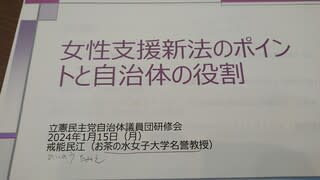 女性支援新法のポイン
トと自治体の役割
立憲民主党自治体議員団研修会
2024年1月15日(月)
戒能民江(お茶の水女子大学名誉教授)
かいのう たみえ